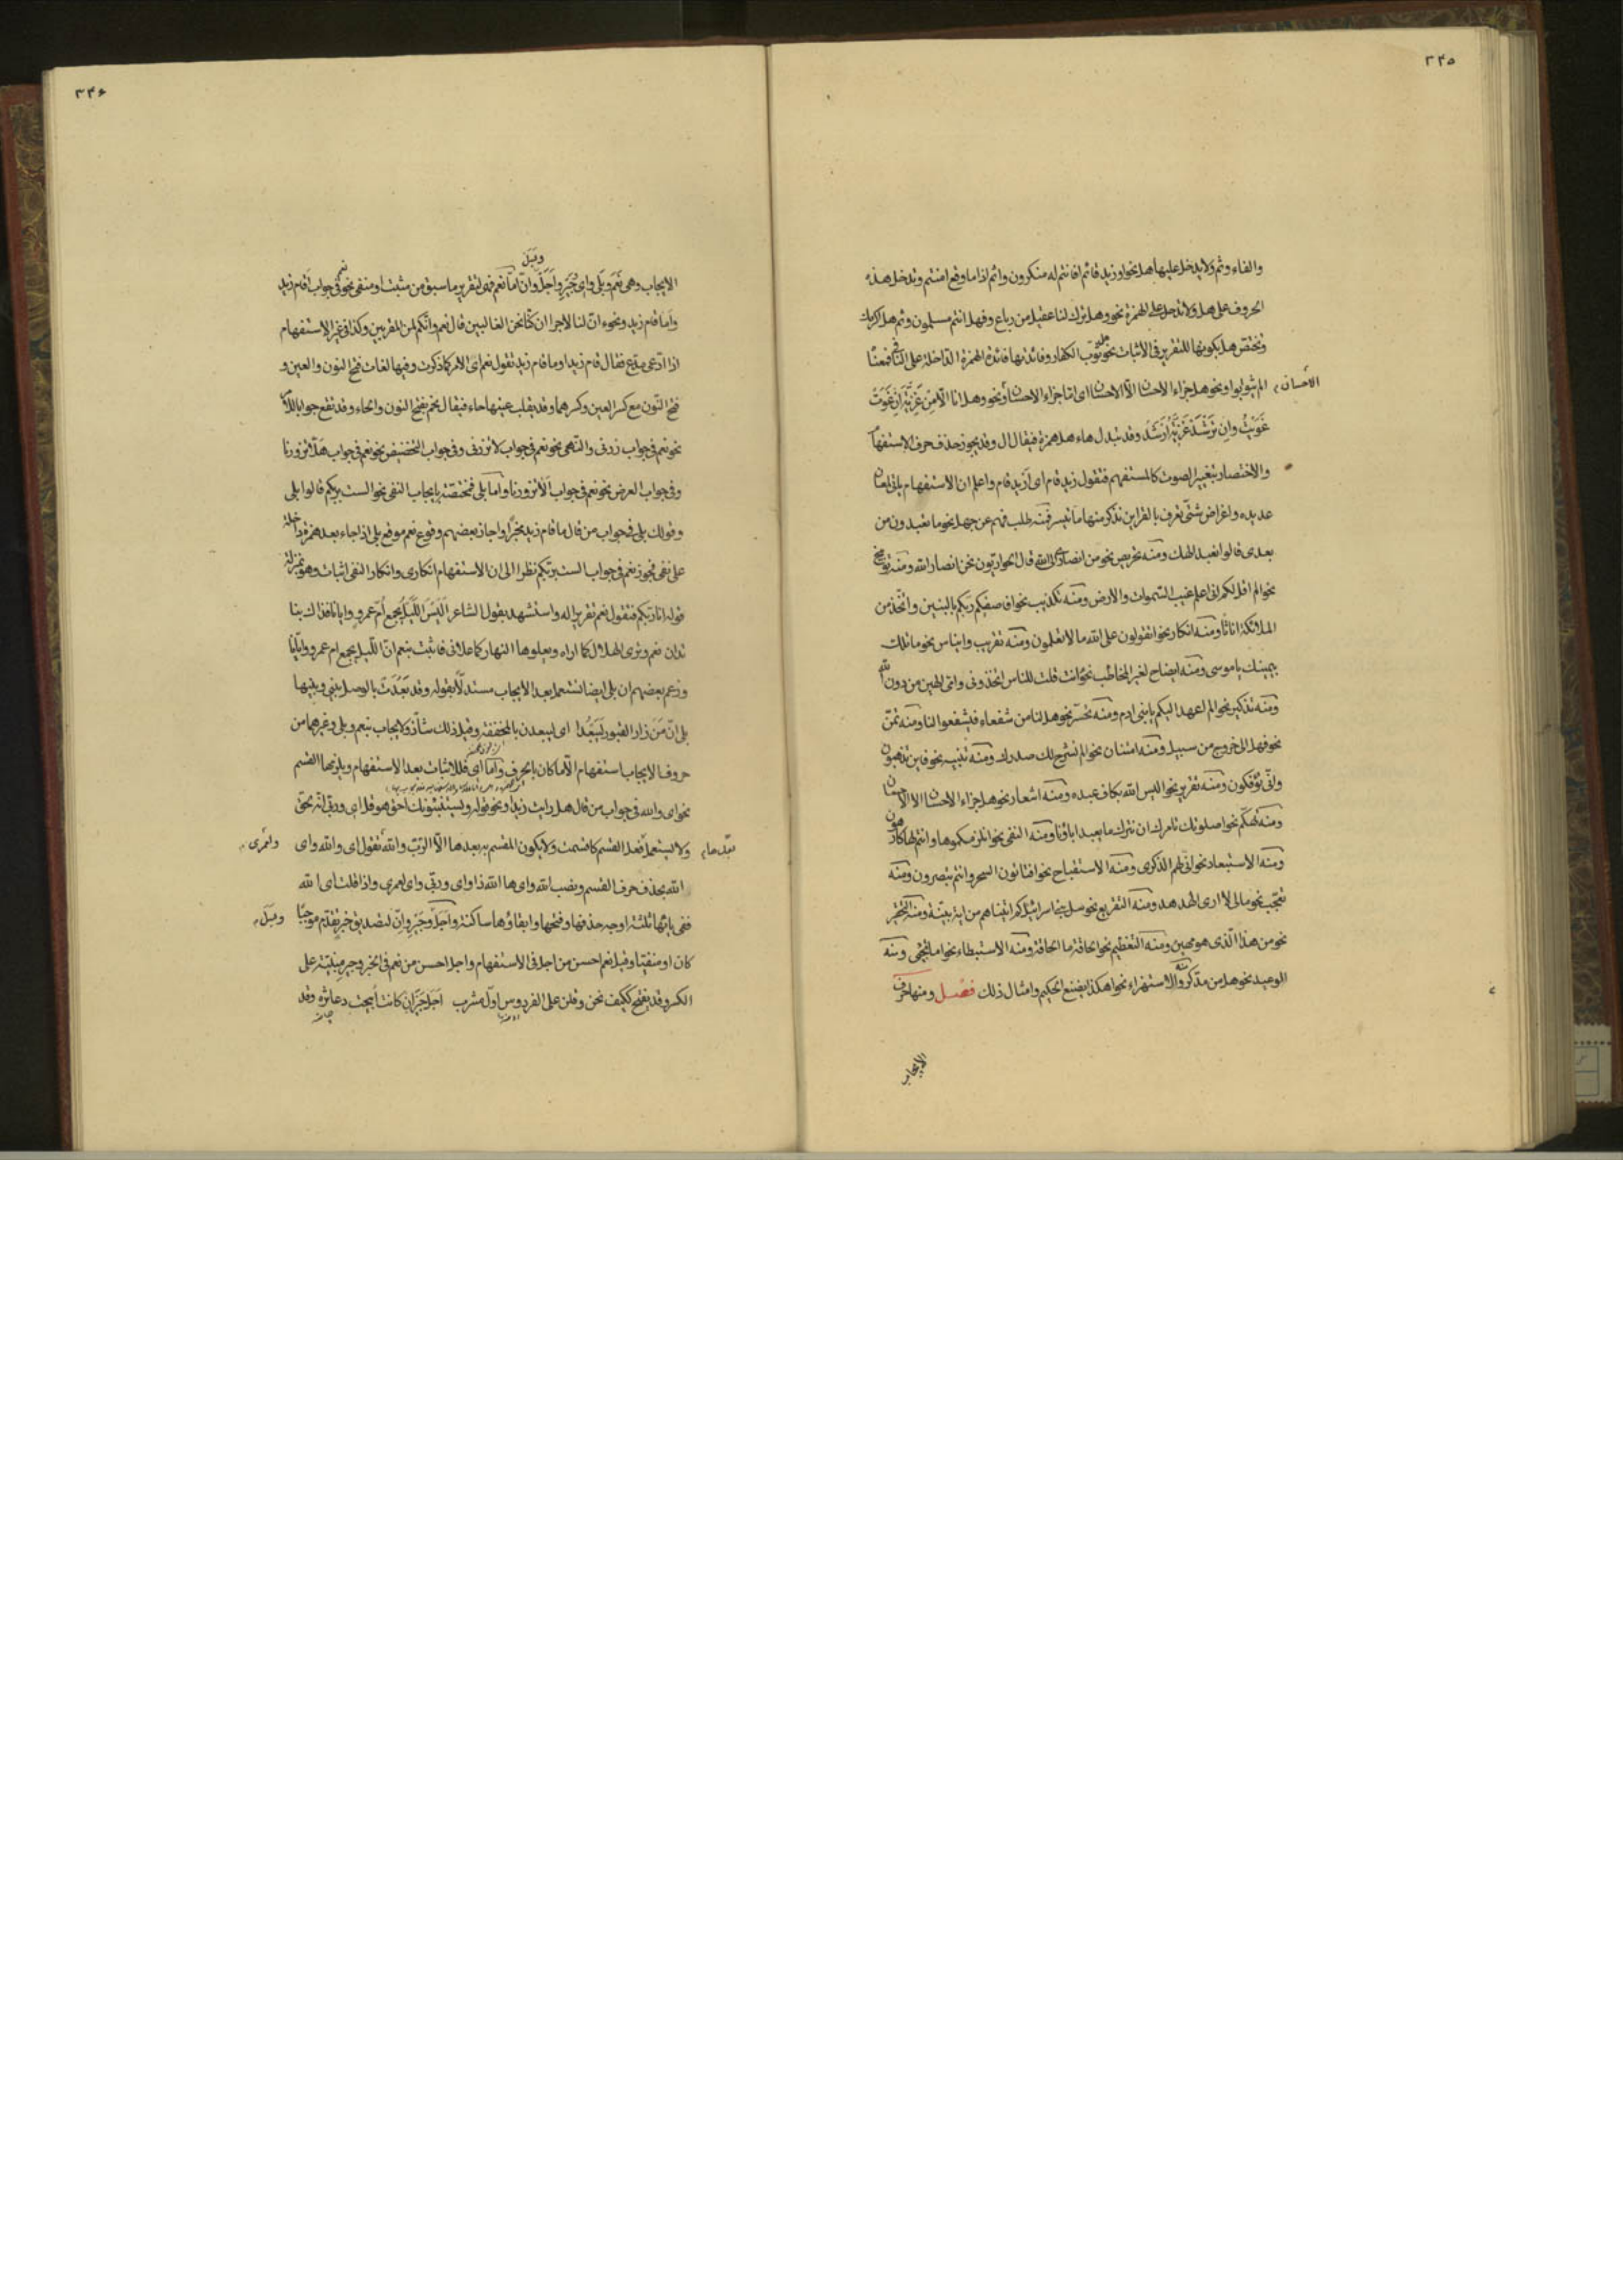 ٣٤٥
والفاء وثم ولا يدخل عليها هل نحو او زيد قائم افانتم له منكرون واثم اذا ما وقع امنتم وتدخل هذه
الحروف على هل ولا تدخل على الهمزة نحو وهل ترك لنا عقيل من رباع وفهل انتم مسلمون وثم هل
وتختص هل بكونها للتقرير فى الاثبات نحو هل ثوب الكفار وفائدتها فائدة الهمزة الداخلة على النافى فمعنا
الم يثوبوا ونحو هل جزاء الاحسان الا الاحسان اى اما جزاء الاحسان ونحو وهل انا الا من غزية ان غوت
الاحسان
غويت وان ترشد غزية ارشد وقد تبدل هاء هل همزة فيقال ال وقد يجوز حذف حرف الاستفهام
والاختصار بتغيير الصوت كالمستفهم فتقول زيد قام اى أزيد قام واعلم ان الاستفهام ياتى لمعان
عديده واغراض شتى تعرف بالقراين نذكر منها ما تيسر فمنه طلب فهم عن جهل نحو ما تعبدون من
بعدى قالوا نعبد الهك ومنه تحريص نحو من انصارى الى الله قال الحواريون نحن انصار الله ومنه توبيخ
نحو الم اقل لكم انى اعلم غيب السموات والارض ومنه تكذيب نحو افاصفيكم ربكم بالبنين واتخذ من
الملائكة اناثا ومنه انكار نحو اتقولون على الله ما لا تعلمون ومنه تقريب وايناس نحو ما تلك
بيمينك يا موسى ومنه ايضاح لغير المخاطب نحو ءانت قلت للناس اتخذونى وامى الهين من دون الله
ومنه تذكير نحو الم اعهد اليكم يا بنى ادم ومنه تحسر نحو هل لنا من شفعاء فيشفعوا لنا ومنه تمن
نحو فهل الى خروج من سبيل ومنه امتنان نحو الم نشرح لك صدرك ومنه تنبيه نحو فاين تذهبون
وانى تؤفكون ومنه تقرير نحو اليس الله بكاف عبده ومنه اشعار نحو هل جزاء الاحسان الا الاحسان
ومنه تهكم نحو اصلوتك تامرك ان نترك ما يعبد اباؤنا ومنه النفى نحو انلزمكموها وانتم لها كارهون
ومنه الاستبعاد نحو انى لهم الذكرى ومنه الاستقباح نحو افتاتون السحر وانتم تبصرون ومنه
تعجب نحو مالى لا ارى الهدهد ومنه التقريع نحو سل بنى اسرائيل كم اتيناهم من اية بينة ومنه التحقير
نحو من هذا الذى هو مهين ومنه التعظيم نحو الحاقة ما الحاقة ومنه الاستبطاء نحو اما تجئى ومنه
الوعيد نحو هل من مدكر ومنه الاستهزاء نحو اهكذا يصنع الحكيم وامثال ذلك فصل ومنها حرف
الايجاب
٣٤٦
وبجل
الايجاب وهى نعم وبلى واى وجير واجل وان اما نعم فهى لتقرير ما سبق من مثبت او منفى نحو نعم فى جواب أقام زيد
واما قام زيد ونحو ءان لنا لاجرا ان كنا نحن الغالبين قال نعم وانكم لمن المقربين وكذا فى غير الاستفهام
اذا ادعى مدع فقال قام زيد او ما قام زيد تقول نعم اى الامر كما ذكرت وفيها لغات فتح النون والعين و
فتح النون مع كسر العين وكسرهما وقد يقلب عينها حاء فيقال نحم بفتح النون والحاء وقد تقع جوابا للامر
نحو نعم فى جواب زرنى والنهى نحو نعم فى جواب لا تزرنى وفى جواب التحضيض نحو نعم فى جواب هلا تزورنا
وفى جواب العرض نحو نعم فى جواب الا تزورنا واما بلى فمختصة بايجاب النفى نحو الست بربكم قالوا بلى
وقولك بلى فى جواب من قال ما قام زيد مخبرا واجاز بعضهم وقوع نعم موقع بلى اذا جاء بعد همزة داخلة
على نفى فيجوز نعم فى جواب الست بربكم نظرا الى ان الاستفهام انكارى وانكار النفى اثبات وهو بمنزلة
قوله انا ربكم فتقول نعم تقريرا له واستشهد بقول الشاعر اليس الليل يجمع ام عمرو وايانا فذاك بنا
تدان نعم وترى الهلال كما اراه ويعلوها النهار كما علانى فاثبت بنعم ان الليل يجمع ام عمرو وايانا
وزعم بعضهم ان بلى ايضا تستعمل بعد الايجاب مستدلا بقوله وقد بعدت بالوصل بينى وبينها
بلى ان من زار القبور ليبعدا اى ليبعدن بالمخففة وقيل ذلك شاذ ولا يجاب بنعم وبلى وغيرهما من
حروف الايجاب استفهام الا ما كان بالحرف واما اى فللاثبات بعد الاستفهام ويلزمها القسم
نحو اى والله فى جواب من قال هل رايت زيدا ونحو قوله ويستنبئونك احق هو قل اى وربى انه لحق
ولا يستعمل فعل القسم كاقسمت ولا يكون المقسم به بعدها الا الرب والله تقول اى والله واى
ولعمرى
الله بحذف حرف القسم ونصب الله واى ها الله ذا واى وربى واى لعمرى واذا قلت اى الله
ففى يائها ثلثة اوجه حذفها وفتحها وابقاؤها ساكنة واجل وجير وان لتصديق خبر تقدم موجبا
وبجل
كان او منفيا وقيل نعم احسن من اجل فى الاستفهام واجل احسن من نعم فى الخبر وجير مبنية على
الكسر وقد يفتح ككيف نحن وقلن على الفردوس اول مشرب اجل جير ان كانت أبيحت دعاثره وقد